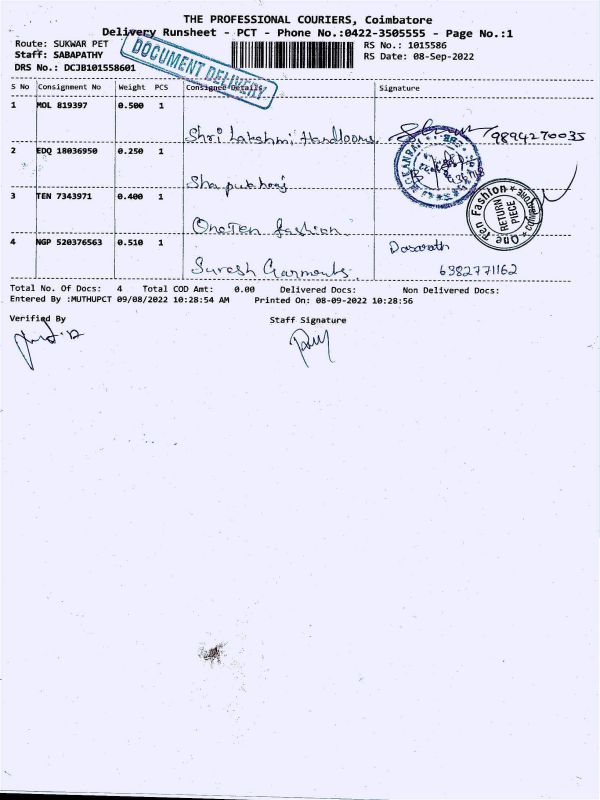 THE PROFESSIONAL COURIERS, Coimbatore
Delivery Runsheet - PCT - Phone No.:0422-3505555 - Page No.:1
Route: SUKWAR PET
RS No.: 1015586
Staff: SABAPATHY
RS Date: 08-Sep-2022
DRS No.: DCJB101558601
DOCUMENT DELIVERY
S No Consignment No Weight PCS Consignee Details Signature
1 MOL 819397 0.500 1
Shri Lakshmi Handlooms 9894270035
2 EDQ 18036950 0.250 1
3 TEN 7343971 0.400 1
One Ten Fashion
RETURN
PIECE
OneTen fashion
4 NGP 520376563 0.510 1
Dasarath
Suresh Garments 6382771162
Total No. Of Docs: 4 Total COD Amt: 0.00 Delivered Docs: Non Delivered Docs:
Entered By :MUTHUPCT 09/08/2022 10:28:54 AM Printed On: 08-09-2022 10:28:56
Verified By Staff Signature